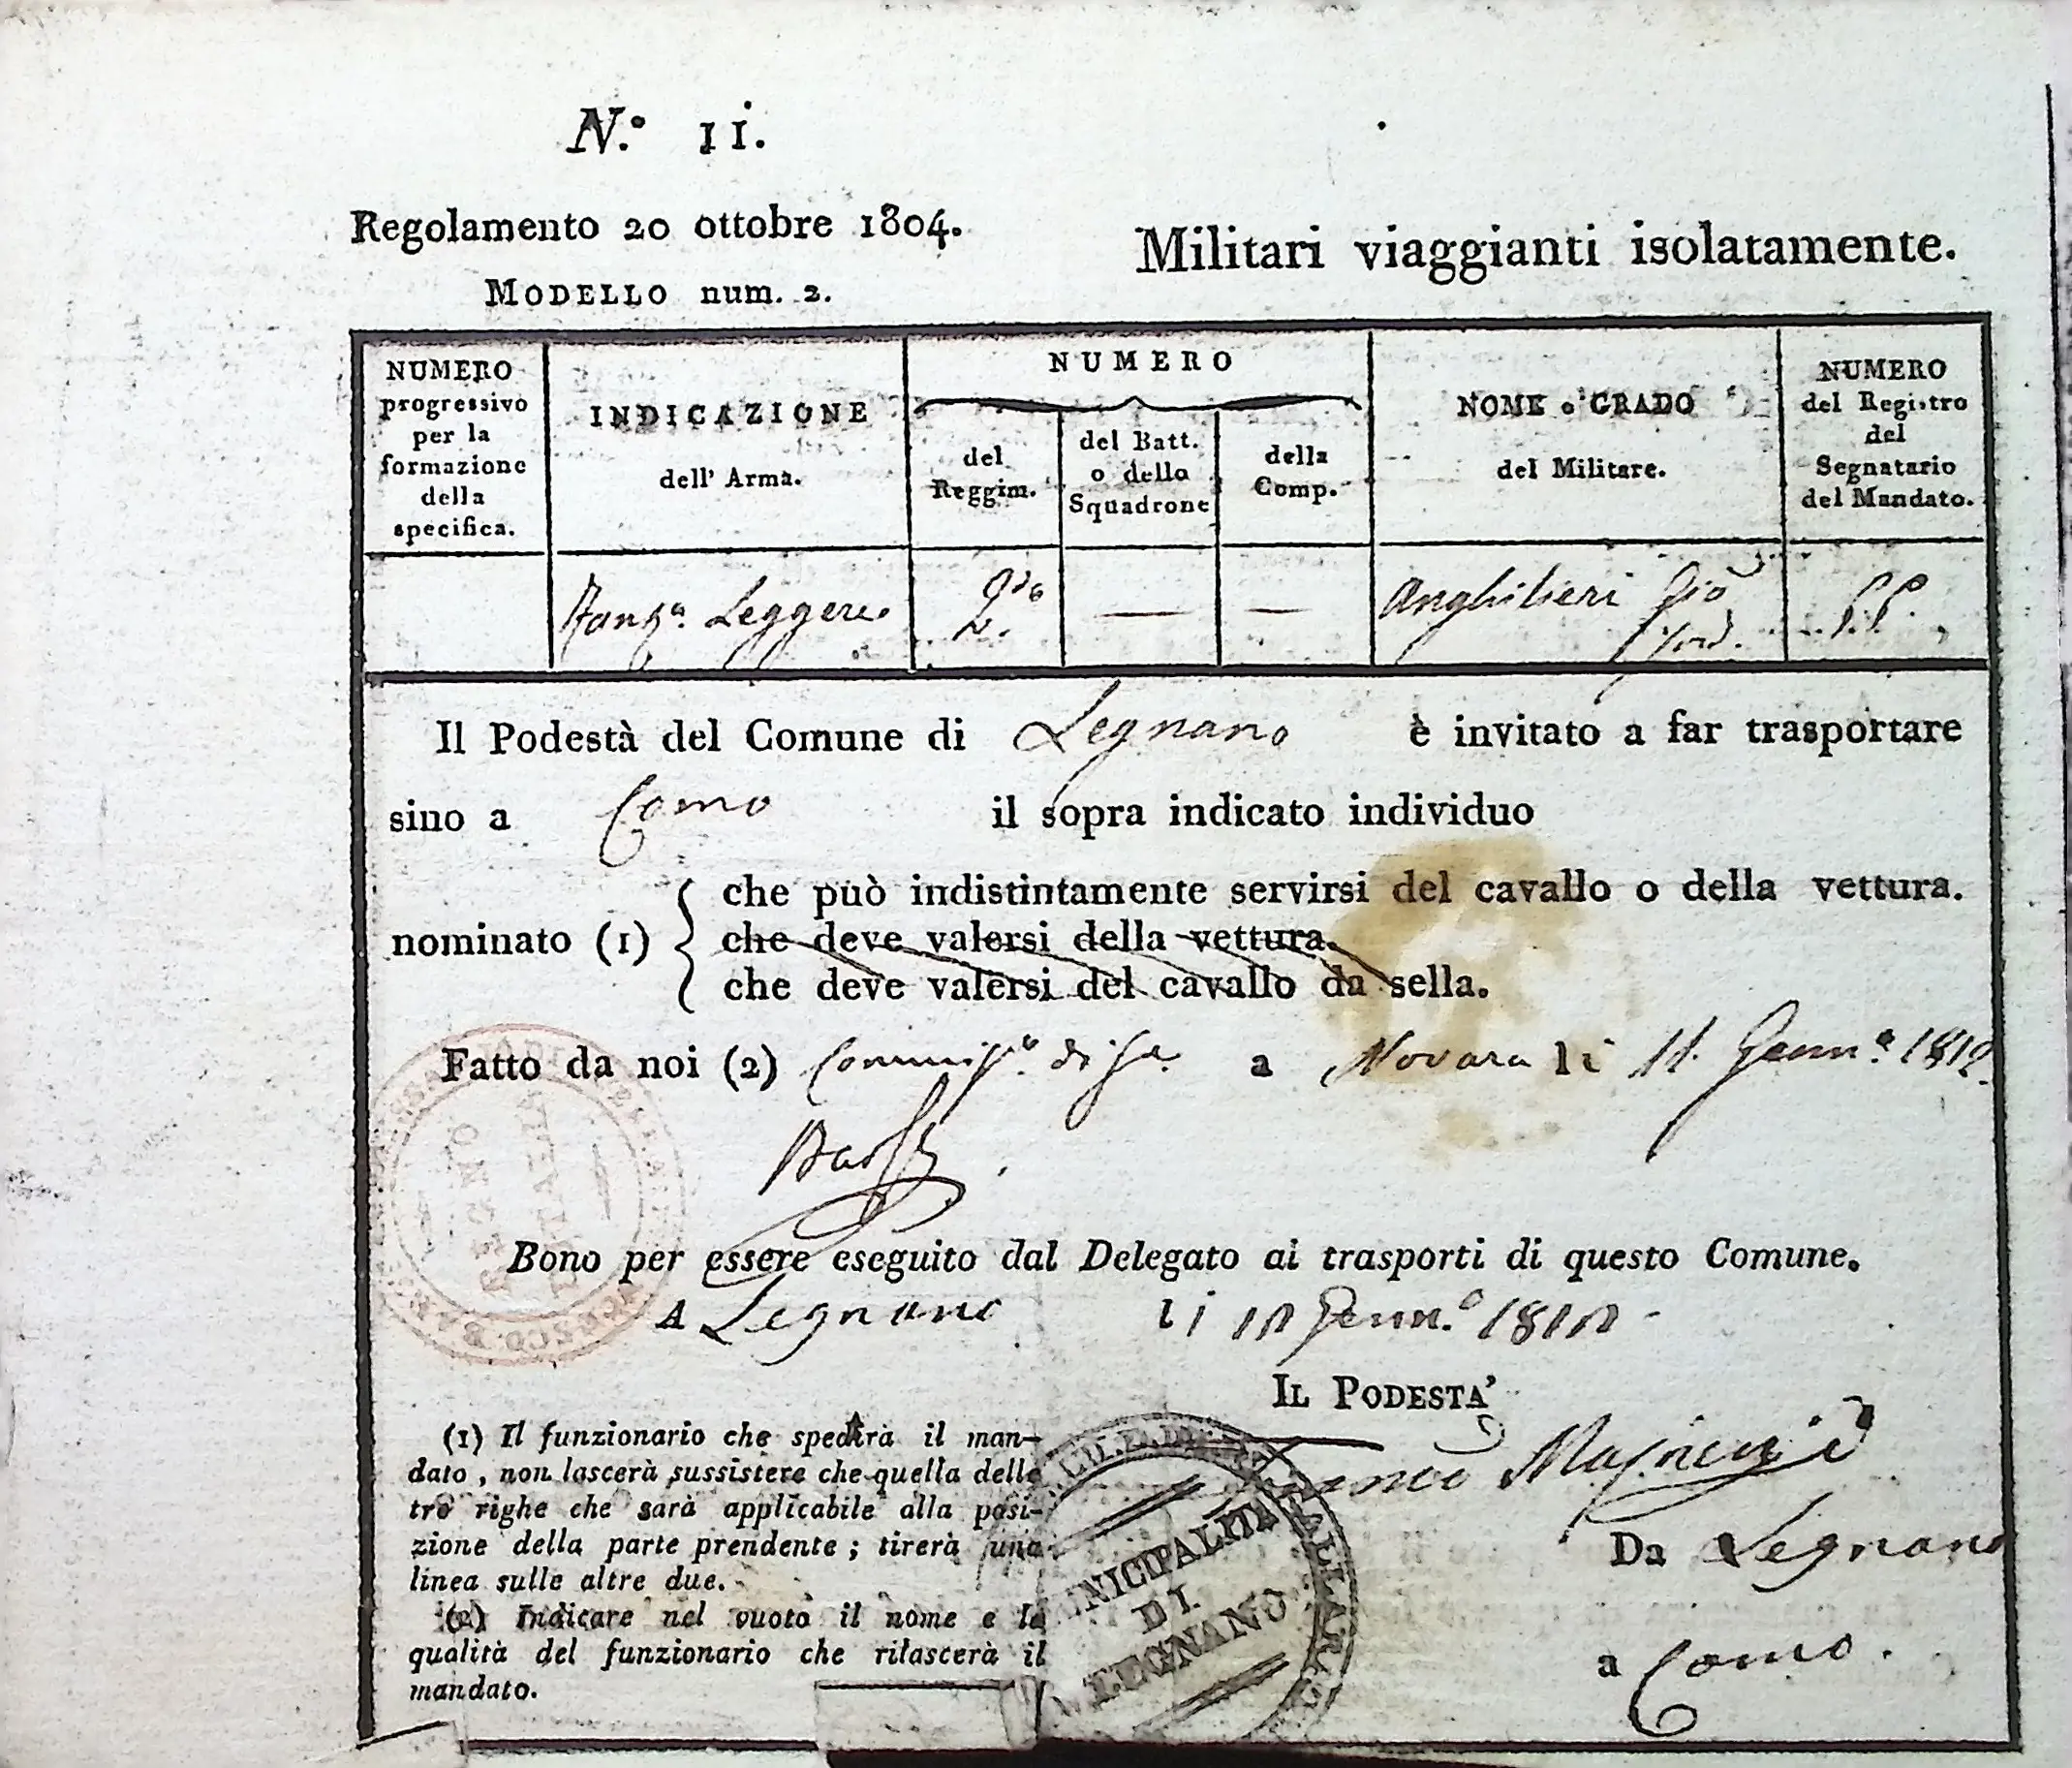 N.º 11.
Regolamento 20 ottobre 1804.
Militari viaggianti isolatamente.
MODELLO num. 2.
NUMERO
progressivo
per la
formazione
della
specifica.
INDICAZIONE
dell' Arma.
NUMERO
del
Reggim.
del Batt.
o dello
Squadrone
della
Comp.
NOME o GRADO
del Militare.
NUMERO
del Registro
del
Segnatario
del Mandato.
Leggere
2.
—
—
Anghilieri Gio
Il Podestà del Comune di Legnano è invitato a far trasportare
sino a Como il sopra indicato individuo
nominato (1)
che può indistintamente servirsi del cavallo o della vettura.
che deve valersi della vettura.
che deve valersi del cavallo da sella.
Fatto da noi (2) Commiss.º di Ga. a Novara li 11. Genn.º 1812.
Bono per essere eseguito dal Delegato ai trasporti di questo Comune.
A Legnano li 12 Genn.º 1812
IL PODESTA'
(1) Il funzionario che spedirà il man-
dato, non lascerà sussistere che quella delle
tre righe che sarà applicabile alla posi-
zione della parte prendente; tirerà una
linea sulle altre due.
(2) Indicare nel vuoto il nome e la
qualità del funzionario che rilascerà il
mandato.
MUNICIPALITÀ
DI
LEGNANO
Da Legnano
a Como.